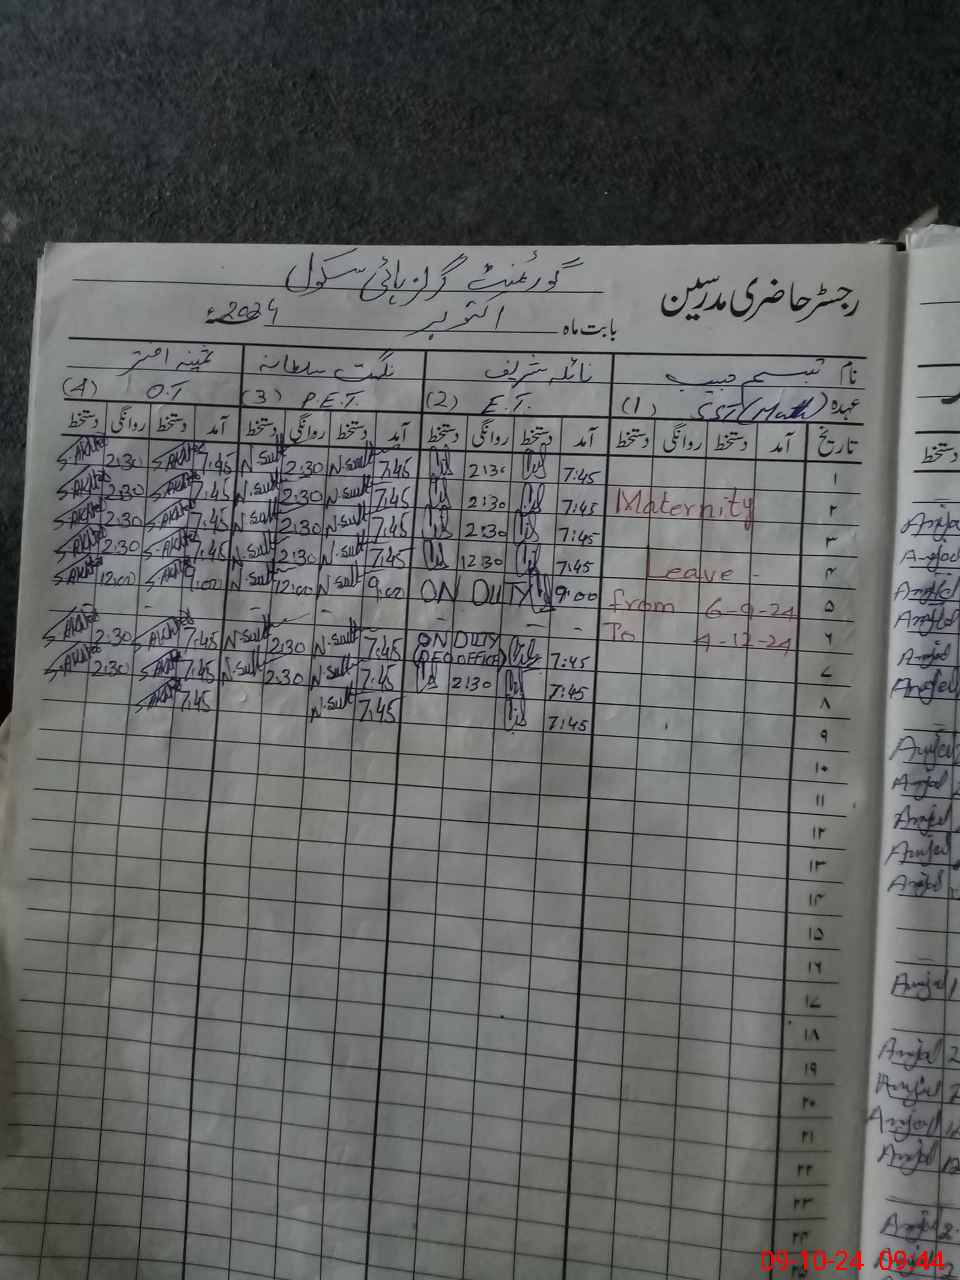 رجسٹر حاضری مدرسین
گورنمنٹ گرلز ہائی سکول
بابت ماہ اکتوبر 2024ء
نام تبسم حبیب نائلہ شریف نگہت سلطانہ ثمینہ اختر
عہدہ SST (Math) (1) E.T. (2) P.E.T. (3) O.T (4)
تاریخ آمد دستخط روانگی دستخط آمد دستخط روانگی دستخط آمد دستخط روانگی دستخط آمد دستخط روانگی دستخط
۱ 7:45 2:30 7:45 N.Sult 2:30 N.Sult 7:45 2:30
۲ Maternity 7:45 2:30 7:45 N.Sult 2:30 N.Sult 7:45 2:30
۳ 7:45 2:30 7:45 N.Sult 2:30 N.Sult 7:45 2:30
۴ Leave - 7:45 12:30 7:45 N.Sult 2:30 N.Sult 7:45 2:30
۵ from 6-9-24 9:00 ON DUTY 9:00 N.Sult 12:00 N.Sult 9:00 12:00
۶ To 4-12-24 - - - - - - -
۷ 7:45 ON DUTY (DEO OFFICE) 7:45 N.Sult 2:30 N.Sult 7:45 2:30
۸ 7:45 2:30 7:45 N.Sult 2:30 N.Sult 7:45 2:30
۹ 7:45 7:45 N.Sult 7:45
۱۰
۱۱
۱۲
۱۳
۱۴
۱۵
۱۶
۱۷
۱۸
۱۹
۲۰
۲۱
۲۲
۲۳
۲۴
۲۵
دستخط
Amjad
Amjad
Amjad
Amjad
Amjad
Amjad
Amjad
Amjad
Amjad
Amjad
Amjad
Amjad
Amjad
Amjad
Amjad
Amjad
Amjad
09-10-24 09:44